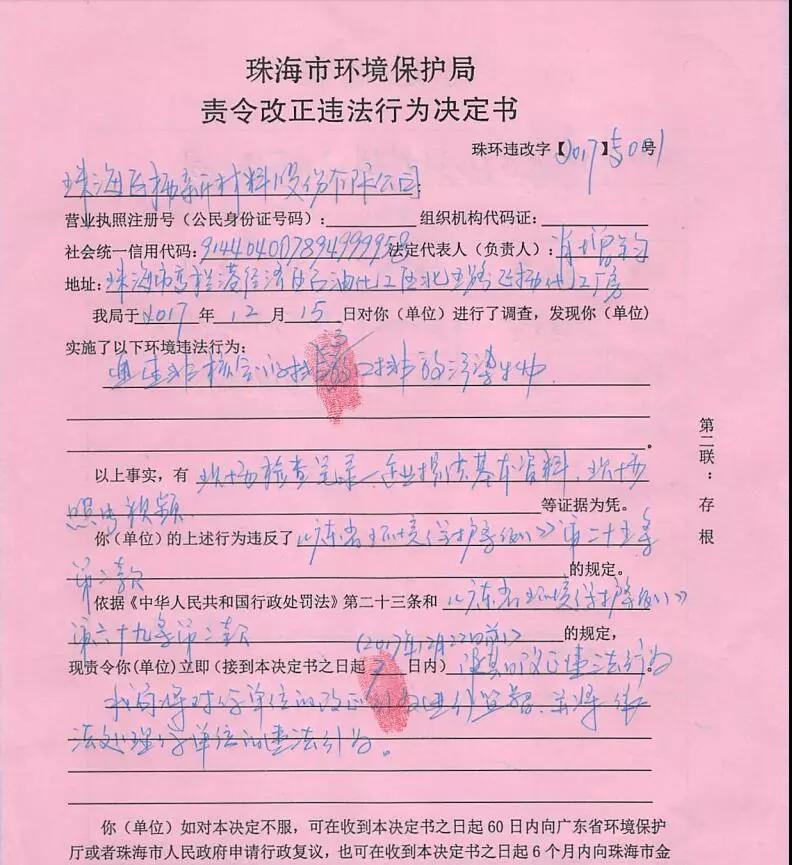 珠海市环境保护局
责令改正违法行为决定书
珠环违改字【2017】
珠海 新材料股份有限公司:
营业执照注册号（公民身份证号码）: 组织机构代码证:
社会统一信用代码: 法定代表人（负责人）:
地址: 珠海市高栏港经济区石油化工区北
我局于 2017 年 12 月 15 日对你（单位）进行了调查，发现你（单位）
实施了以下环境违法行为:
通过非核定的排污口排放污染物
。
以上事实，有 现场检查笔录、企业提供基本资料、现场
照片 视频 等证据为凭。
你（单位）的上述行为违反了《广东省环境保护条例》第二十五条
第二款 的规定。
依据《中华人民共和国行政处罚法》第二十三条和《广东省环境保护条例》
第六十九条第二款 的规定，
(2017年12月22日前)
现责令你(单位)立即（接到本决定书之日起 7 日内） 改正违法行为。
我局将对你单位的改正行为进行监督，并将依
法处理你单位的违法行为。
你（单位）如对本决定不服，可在收到本决定书之日起 60 日内向广东省环境保护
厅或者珠海市人民政府申请行政复议，也可在收到本决定书之日起 6 个月内向珠海市金
第二联：存根